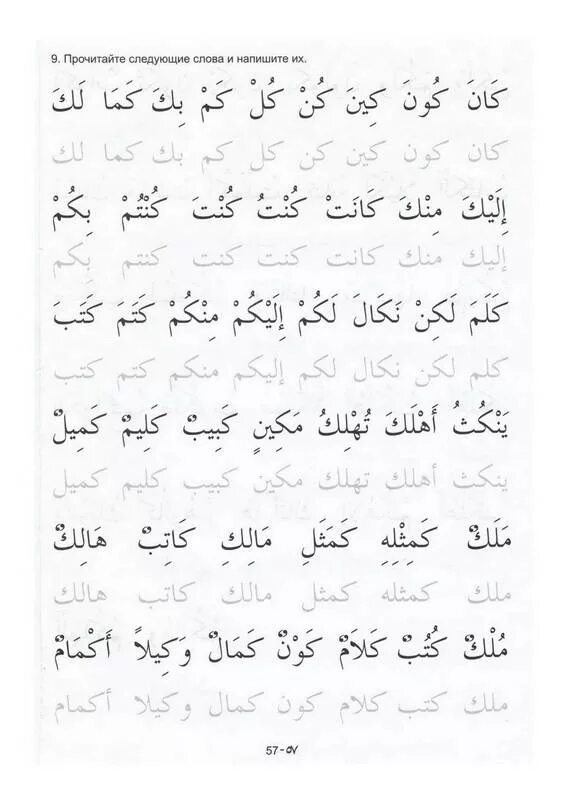 9. Прочитайте следующие слова и напишите их.
كَانَ كُونَ كِينَ كُنْ كُلْ كَمْ بِكَ كَمَا لَكَ
كان كون كين كن كل كم بك كما لك
إِلَيْكَ مِنْكَ كَانَتْ كُنْتُ كُنْتَ كُنْتُمْ بِكُمْ
إليك منك كانت كنت كنت كنتم بكم
كَلَمَ لَكِنْ نَكَالَ لَكُمْ إِلَيْكُمْ مِنْكُمْ كَتَمَ كَتَبَ
كلم لكن نكال لكم إليكم منكم كتم كتب
يَنْكُثُ أَهْلَكَ تُهْلِكُ مَكِينٍ كَبِيبٌ كَلِيمٌ كَمِيلٌ
ينكث أهلك تهلك مكين كبيب كليم كميل
مَلَكٌ كَمِثْلِهِ كَمَثَلِ مَالِكِ كَاتِبٌ هَالِكٌ
ملك كمثله كمثل مالك كاتب هالك
مُلْكٌ كُتُبٌ كَلَامٌ كَوْنٌ كَمَالٌ وَكِيلاً أَكْمَامٌ
ملك كتب كلام كون كمال وكيلا أكمام
57-٥٧